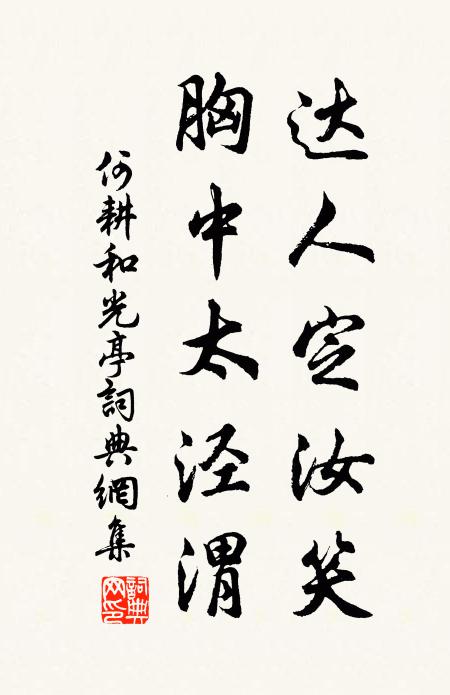 达人定汝笑
胸中太泾渭
何耕和光亭詞典網集
詞典網印